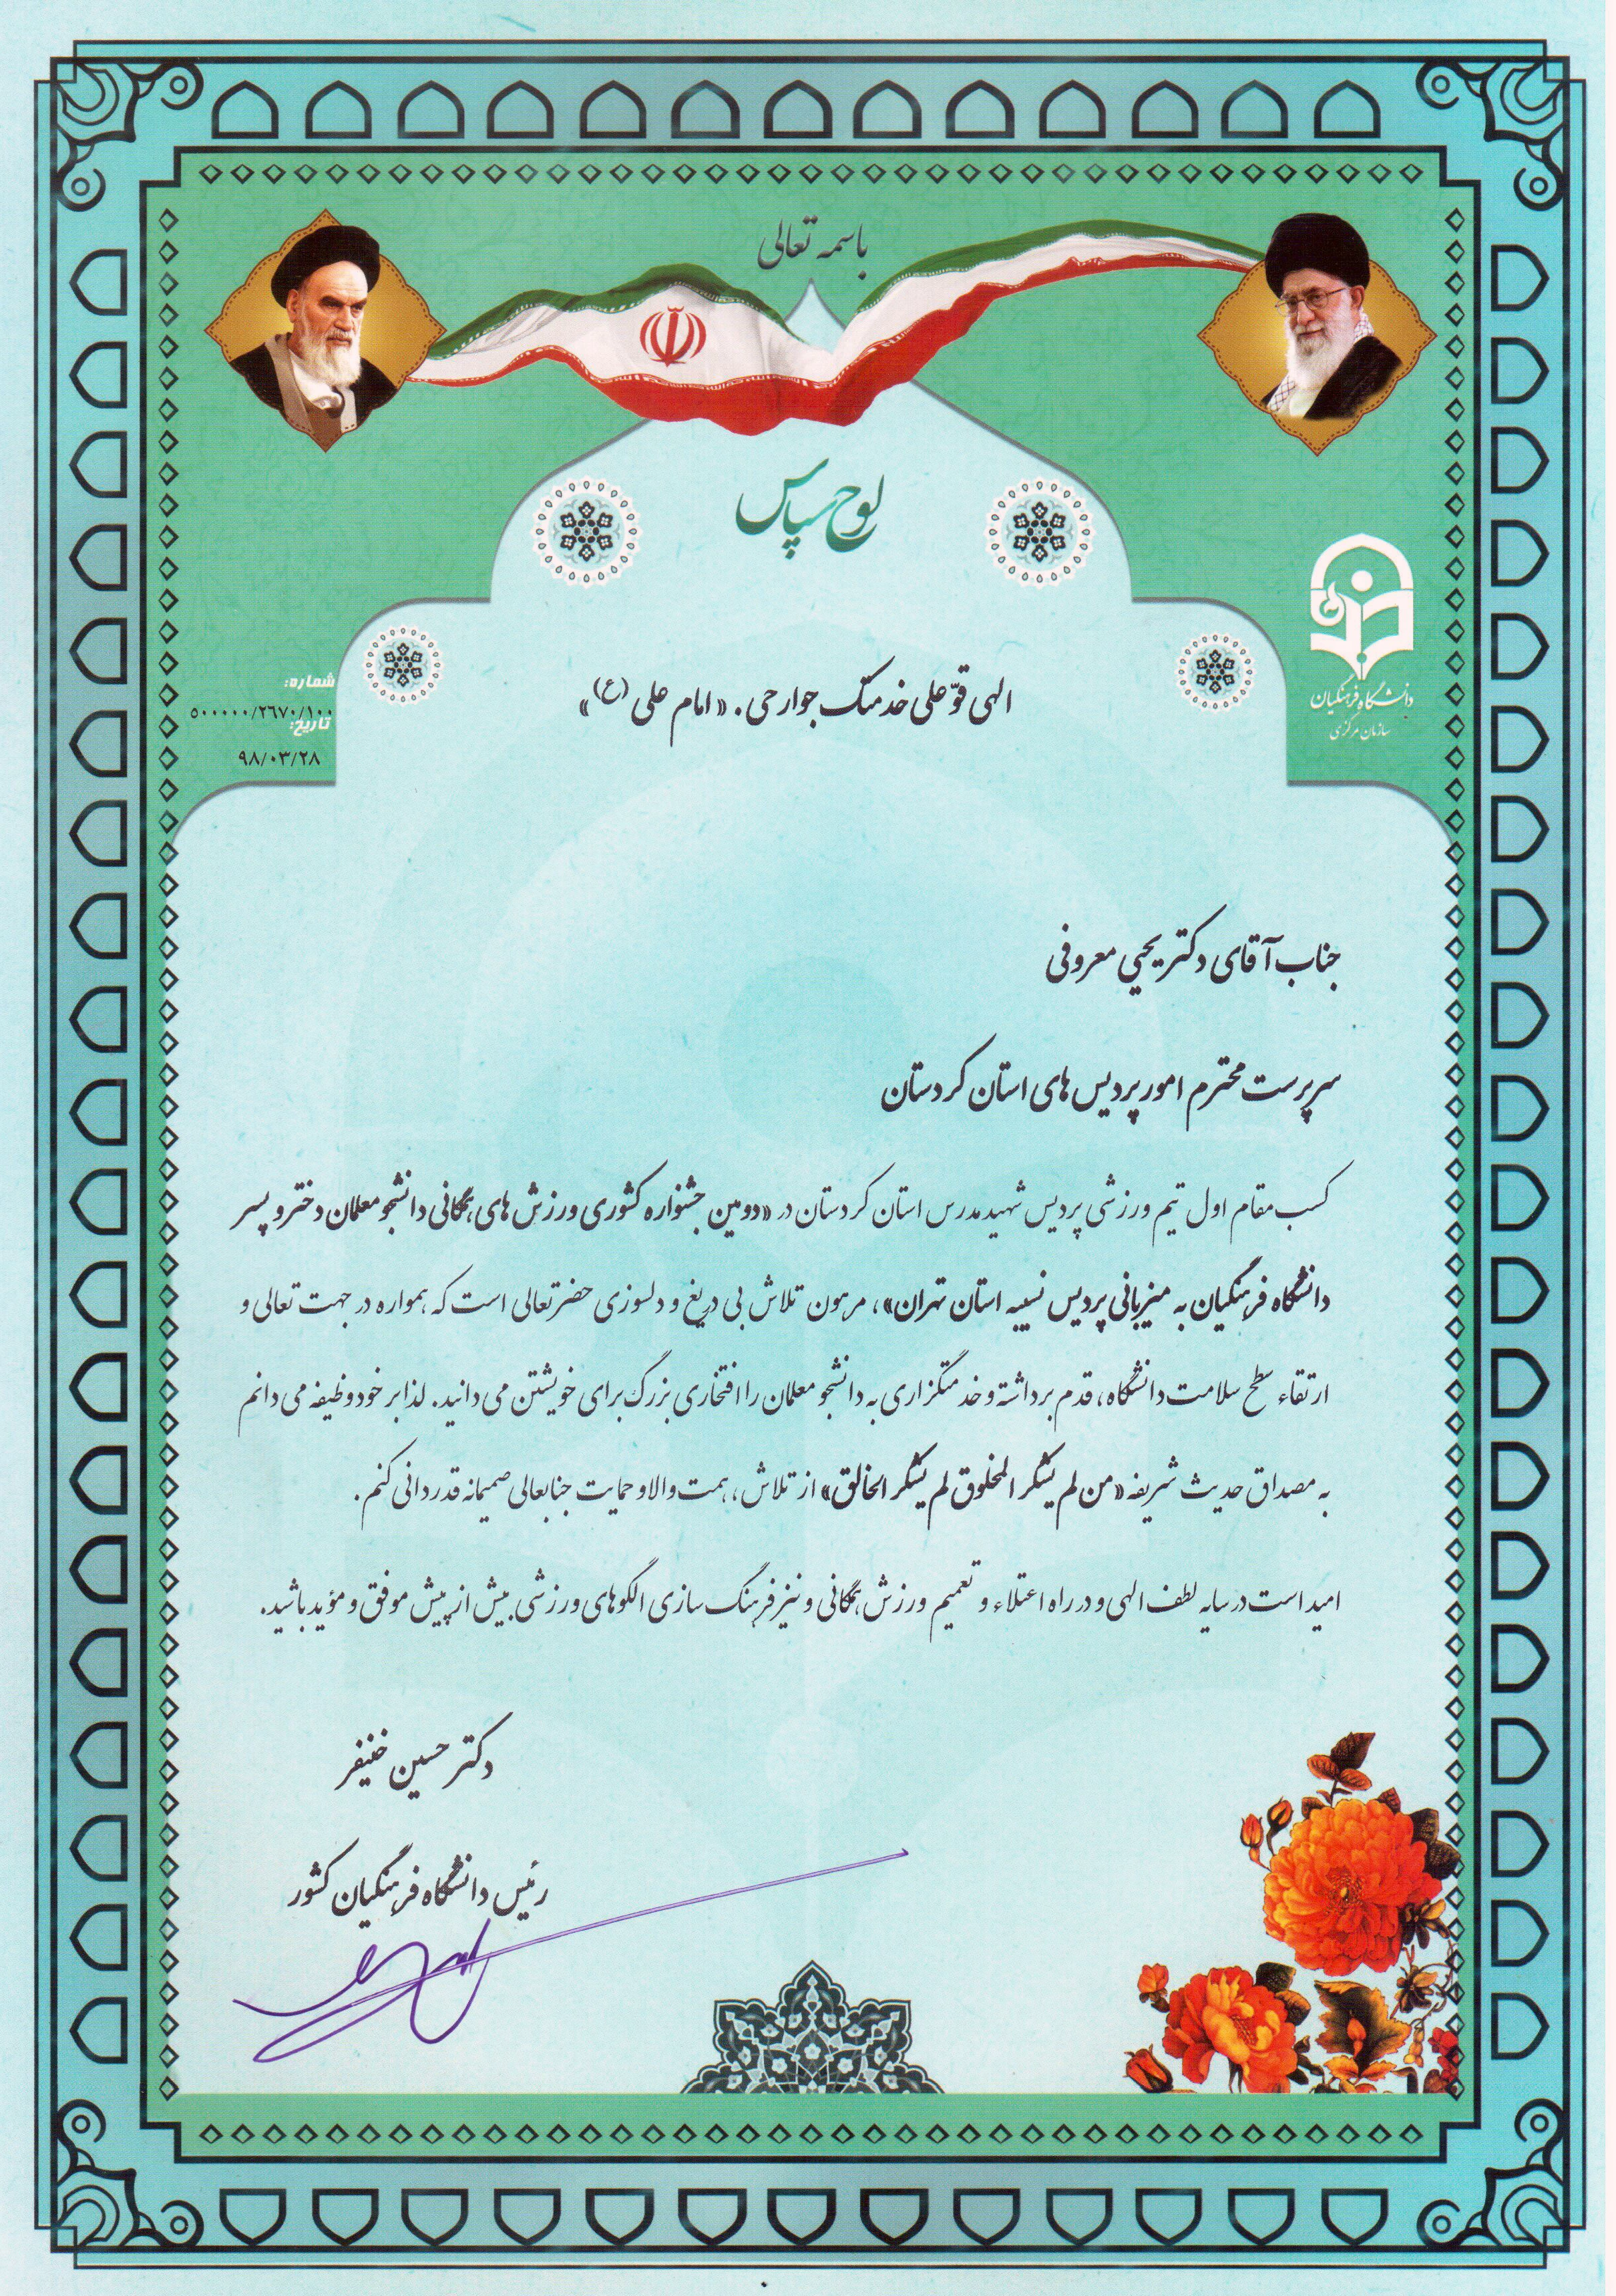 باسمه تعالی
لوح سپاس
دانشگاه فرهنگیان
سازمان مرکزی
شماره:
۵۰۰۰۰۰/۲۶۷۰/۱۰۰
تاریخ:
۹۸/۰۳/۲۸
الهی قوّ علی خدمتک جوارحی. «امام علی (ع)»
جناب آقای دکتر یحیی معروفی
سرپرست محترم امور پردیس های استان کردستان
کسب مقام اول تیم ورزشی پردیس شهید مدرس استان کردستان در «دومین جشنواره کشوری ورزش های همگانی دانشجو معلمان دختر و پسر
دانشگاه فرهنگیان به میزبانی پردیس نسیبه استان تهران»، مرهون تلاش بی دریغ و دلسوزی حضرتعالی است که همواره در جهت تعالی و
ارتقاء سطح سلامت دانشگاه، قدم برداشته و خدمتگزاری به دانشجو معلمان را افتخاری بزرگ برای خویشتن می دانید. لذا بر خود وظیفه می دانم
به مصداق حدیث شریفه «من لم یشکر المخلوق لم یشکر الخالق» از تلاش، همت والا و حمایت جنابعالی صمیمانه قدردانی کنم.
امید است در سایه لطف الهی و در راه اعتلاء و تعمیم ورزش همگانی و نیز فرهنگ سازی الگوهای ورزشی بیش از پیش موفق و مؤید باشید.
دکتر حسین خنیفر
رئیس دانشگاه فرهنگیان کشور